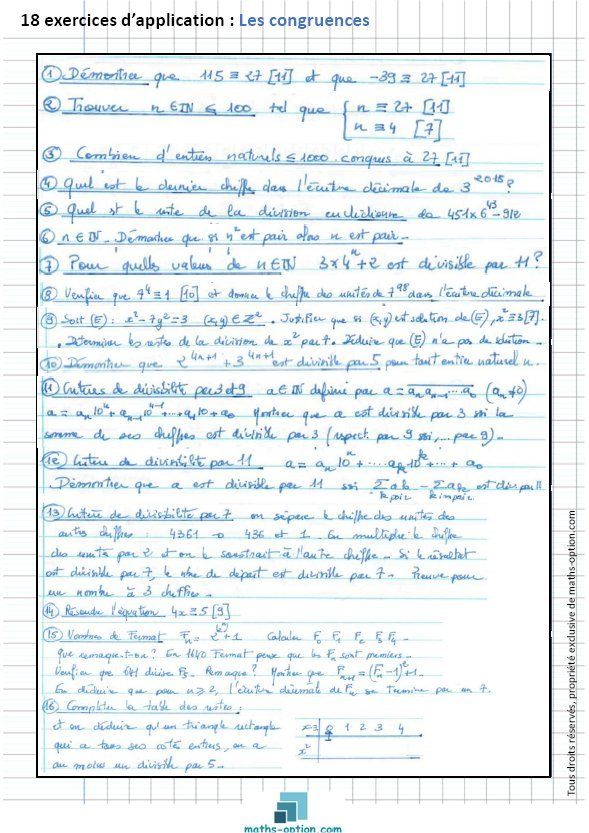 18 exercices d'application : Les congruences
① Démontrer que 115 ≡ 27 [11] et que -39 ≡ 27 [11]
② Trouver n ∈ ℕ ≤ 100 tel que { n ≡ 27 [11]
n ≡ 4 [7]
③ Combien d'entiers naturels ≤ 1000 congrus à 27 [11]
④ Quel est le dernier chiffre dans l'écriture décimale de 3^2015 ?
⑤ Quel est le reste de la division euclidienne de 451 x 6^43 - 912
⑥ n ∈ ℕ. Démontrer que si n² est pair alors n est pair.
⑦ Pour quelles valeurs de n ∈ ℕ 3x4^n + 2 est divisible par 11 ?
⑧ Vérifier que 7^4 ≡ 1 [10] et donner le chiffre des unités de 7^98 dans l'écriture décimale
⑨ Soit (E) : x² - 7y² = 3 (x,y) ∈ ℤ². Justifier que si (x,y) est solution de (E), x² ≡ 3 [7].
. Déterminer les restes de la division de x² par 7. Déduire que (E) n'a pas de solution.
⑩ Démontrer que 2^4n+1 + 3^4n+1 est divisible par 5, pour tout entier naturel n.
⑪ Critères de divisibilité par 3 et 9 a ∈ ℕ définie par a = a_n a_n-1 ... a_0 (a_n ≠ 0)
a = a_n 10^n + a_n-1 10^n-1 + ... + a_1 10 + a_0 Montrer que a est divisible par 3 ssi la
somme de ses chiffres est divisible par 3 (respect. par 9 ssi, ... par 9).
⑫ Critère de divisibilité par 11 a = a_n 10^n + ... a_k 10^k + ... + a_0
Démontrer que a est divisible par 11 ssi Σ a_k - Σ a_k est div. par 11
k pair k impair
⑬ Critère de divisibilité par 7 on sépare le chiffre des unités des
autres chiffres : 4361 → 436 et 1. On multiplie le chiffre
des unités par 2 et on le soustrait à l'autre chiffre. Si le résultat
est divisible par 7, le nbre de départ est divisible par 7. Preuve pour
un nombre à 3 chiffres.
⑭ Résoudre l'équation 4x ≡ 5 [9]
⑮ Nombres de Fermat F_n = 2^(2^n) + 1 Calculer F_0 F_1 F_2 F_3 F_4.
que remarque-t-on ? En 1640 Fermat pense que les F_n sont premiers.
Vérifier que 641 divise F_5. Remarque ? Montrer que F_n+1 = (F_n - 1)² + 1.
En déduire que pour n ≥ 2, l'écriture décimale de F_n se termine par un 7.
⑯ Compléter la table des restes :
et en déduire qu'un triangle rectangle
qui a tous ses côtés entiers, en a
au moins un divisible par 5.
x ≡ 0 1 2 3 4
x²
Tous droits réservés, propriété exclusive de maths-option.com
maths-option.com